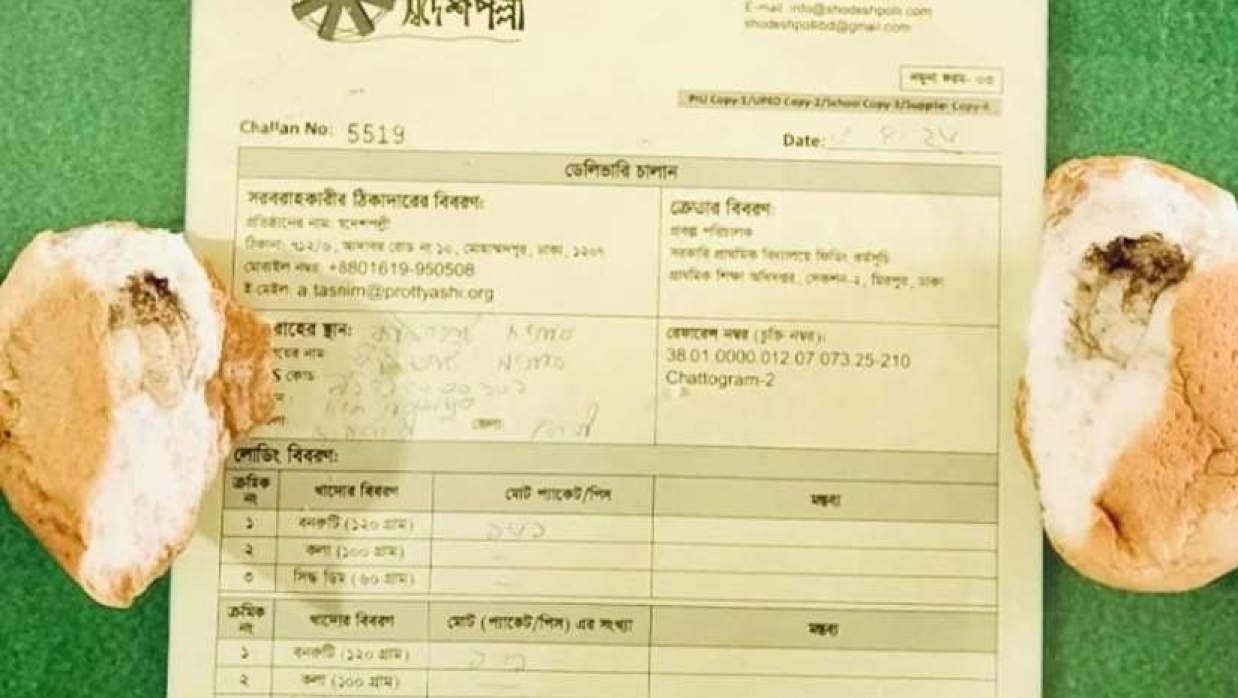 স্বদেশপল্লী
E-mail: info@shodeshpolli.com
shodeshpollibd@gmail.com
নমুনা ফরম- ০৩
PIU Copy-1/UPEO Copy-2/School Copy-3/Supplier Copy-4
Challan No: 5519
Date:
ডেলিভারি চালান
সরবরাহকারীর ঠিকাদারের বিবরণ:
প্রতিষ্ঠানের নাম: স্বদেশপল্লী
ঠিকানা: ৭১২/৬, আদাবর রোড নং ১০, মোহাম্মদপুর, ঢাকা, ১২০৭
মোবাইল নম্বর: +8801619-950508
ই-মেইল: a.tasnim@prottyashi.org
ক্রেতার বিবরণ:
প্রকল্প পরিচালক
সরকারি প্রাথমিক বিদ্যালয়ে ফিডিং কর্মসূচি
প্রাথমিক শিক্ষা অধিদপ্তর, সেকশন-২, মিরপুর, ঢাকা
রাহের স্থান:
য়ের নাম
S কোড
জেলা:
রেফারেন্স নম্বর (চুক্তি নম্বর):
38.01.0000.012.07.073.25-210
Chattogram-2
লোডিং বিবরণ:
ক্রমিক নং খাদ্যের বিবরণ মোট প্যাকেট/পিস মন্তব্য
১ বনরুটি (১২০ গ্রাম)
২ কলা (১০০ গ্রাম)
৩ সিদ্ধ ডিম (৬০ গ্রাম)
ক্রমিক নং খাদ্যের বিবরণ মোট (প্যাকেট/পিস) এর সংখ্যা মন্তব্য
১ বনরুটি (১২০ গ্রাম)
২ কলা (১০০ গ্রাম)